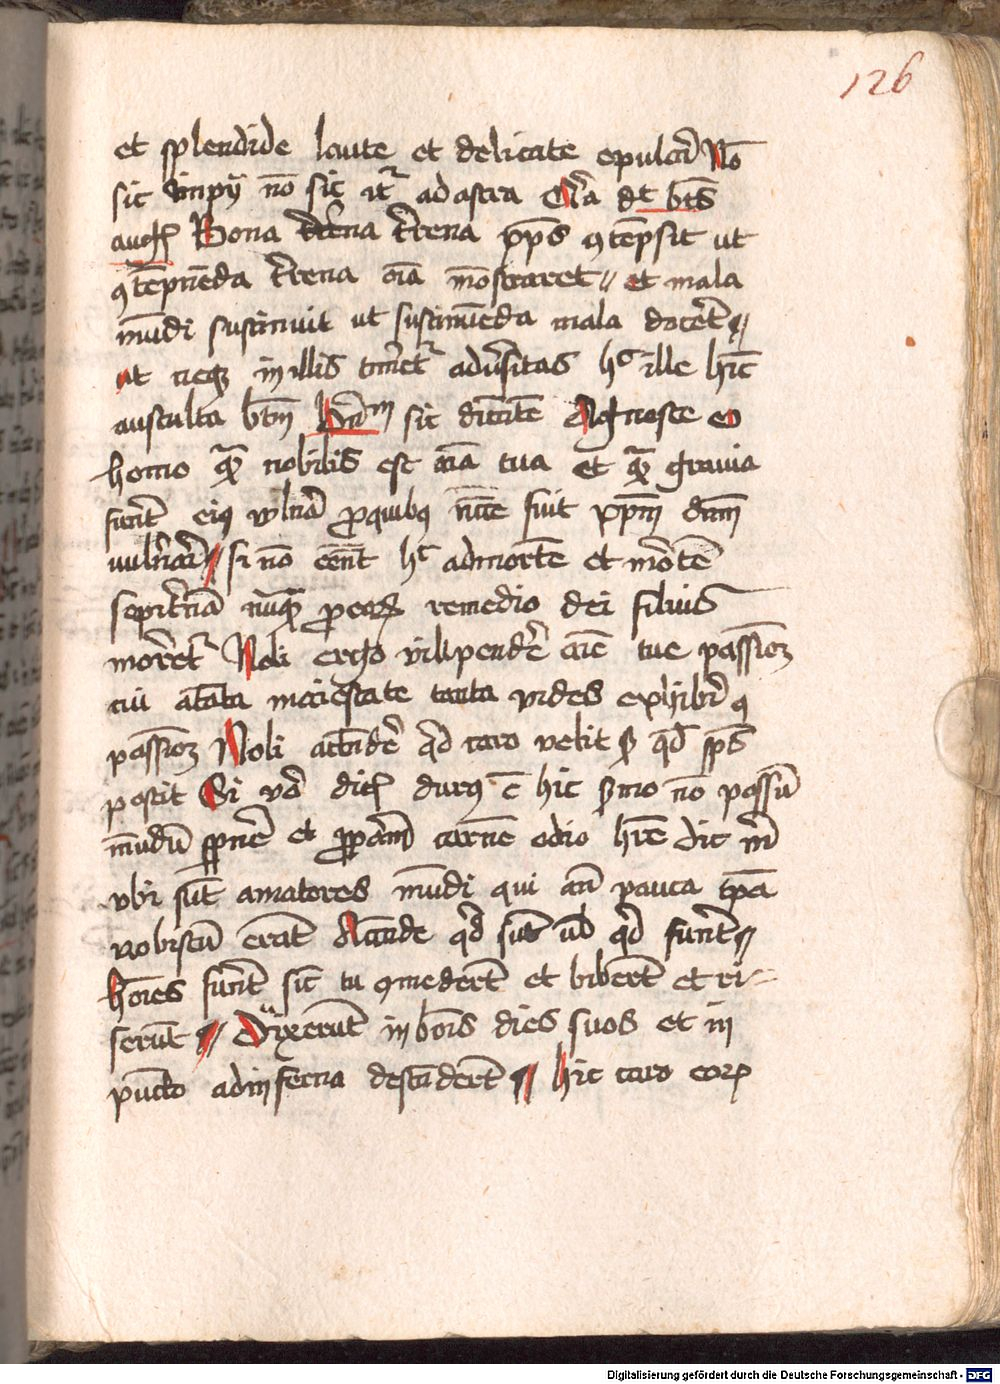 126
et splendide laute et delicate epulari Nō
sic impij nō sic itr ad astra Qr̄a dt bt̄s
aug9 Bona terrena xp̄s 9tēpsit ut
9tēpnēda t̄rena oīa mōstraret et mala
mūdi sustinuit ut sustinēda mala docēt
ut neq3 in illis timēetr adūsitas hc ille hīc
ausculta btm̄ bn̄dm sic dicētē Agnosce o
homo qm̄ nobilis est aīa tua et qm̄ gravia
fuer̄t ei9 vuln̄a pro quib9 nc̄ce fuit xpm̄ dnm̄
uuln̄ari si nō eēnt hc ad mortē et mōrtē
sempit̄nā nūqm̄ pro eor remedio dei filius
morēetr Noli ergo vilipendē̄ aīe tue passionē
cui a tāta maiestate tanta vides exhiberi 9
passionē Noli attēdē̄ qd caro velit s3 qd sp̄s
poscit Si vō dic9 dur9 ē hic s̄mo nō possū
mūdū sp̄nē̄ et propriam̄ carnē odio hr̄e dic m̄
ubi sūt amatores mūdi qui an̄ pauca tpa̅
nobiscū erāt Attēde qd sūt ul̄ qd fuer̄t
hōīes fuer̄t sic tu 9mederūt et biberūt et ri-
serūt Duxerūt in bōīs dies suos et in
pūcto ad inferna descēderūt hic caro eor
Digitalisierung gefördert durch die Deutsche Forschungsgemeinschaft - DFG